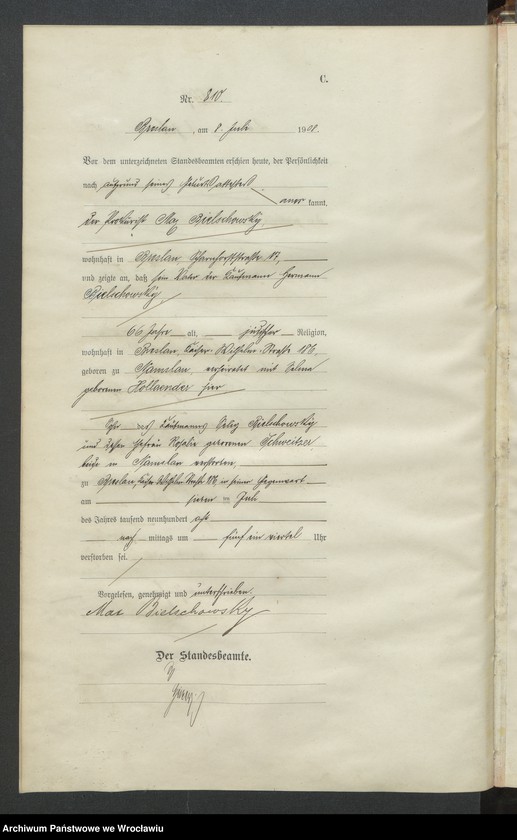 C.
Nr. 810.
Breslau, am 8. Juli 1908.
Vor dem unterzeichneten Standesbeamten erschien heute, der Persönlichkeit
nach aufgrund seines Geburtsattestes
anerkannt,
der Prokurist Max Bielschowsky,
wohnhaft in Breslau, Scharnhorststraße 17,
und zeigte an, daß sein Vater der Kaufmann Hermann
Bielschowsky
66 Jahre alt, jüdischer Religion,
wohnhaft in Breslau, Kaiser-Wilhelm-Straße 186,
geboren zu Namslau, verheiratet mit Selma
geborenen Hollaender hier
Sohn des Kaufmanns Selig Bielschowsky
und dessen Ehefrau Rosalie geborenen Schweitzer,
beide in Namslau verstorben,
zu Breslau, Kaiser Wilhelm Straße 186, in seiner Gegenwart
am sieben ten Juli
des Jahres tausend neunhundert acht
nach mittags um fünf ein viertel Uhr
verstorben sei.
Vorgelesen, genehmigt und unterschrieben
Max Bielschowsky
Der Standesbeamte.
Archiwum Państwowe we Wrocławiu